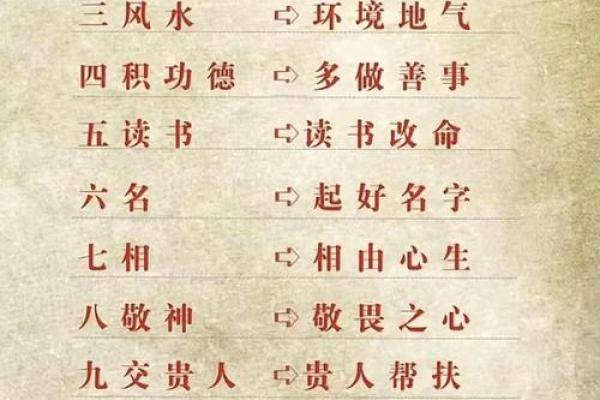 三风水 ➪ 环境地气
四积功德 ➪ 多做善事
五读书 ➪ 读书改命
六名 ➪ 起好名字
七相 ➪ 相由心生
八敬神 ➪ 敬畏之心
九交贵人 ➪ 贵人帮扶